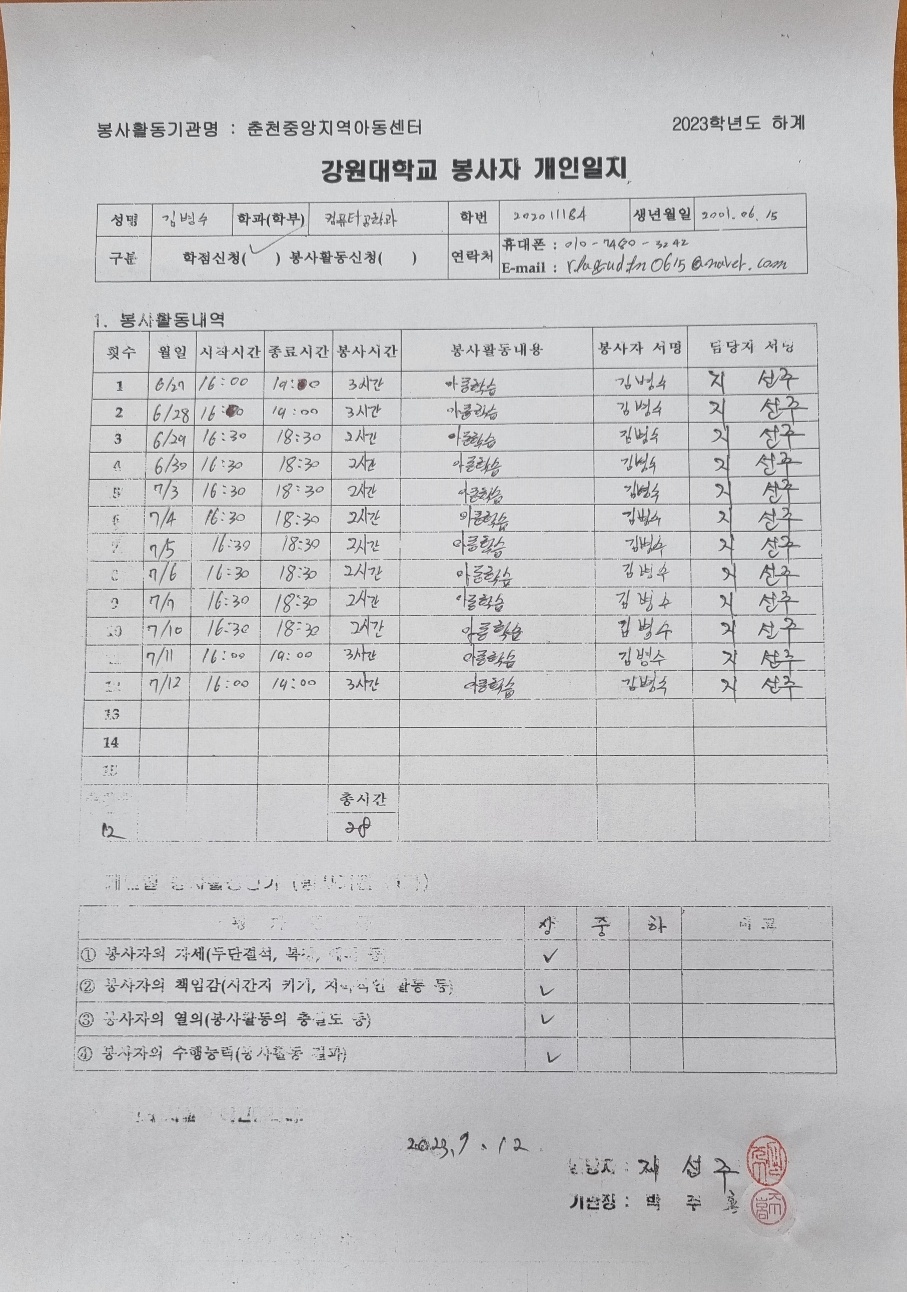 봉사활동기관명 : 춘천중앙지역아동센터 2023학년도 하계
강원대학교 봉사자 개인일지
성명 김병수 학과(학부) 컴퓨터공학과 학번 202011184 생년월일 2001.06.15
구분 학점신청(✓) 봉사활동신청( ) 연락처 휴대폰 : 010-7480-3242
E-mail : rlaqudtn0615@naver.com
1. 봉사활동내역
횟수 월일 시작시간 종료시간 봉사시간 봉사활동내용 봉사자 서명 담당자 서명
1 6/27 16:00 19:00 3시간 아동학습 김병수 지선주
2 6/28 16:00 19:00 3시간 아동학습 김병수 지선주
3 6/29 16:30 18:30 2시간 아동학습 김병수 지선주
4 6/30 16:30 18:30 2시간 아동학습 김병수 지선주
5 7/3 16:30 18:30 2시간 아동학습 김병수 지선주
6 7/4 16:30 18:30 2시간 아동학습 김병수 지선주
7 7/5 16:30 18:30 2시간 아동학습 김병수 지선주
8 7/6 16:30 18:30 2시간 아동학습 김병수 지선주
9 7/7 16:30 18:30 2시간 아동학습 김병수 지선주
10 7/10 16:30 18:30 2시간 아동학습 김병수 지선주
7/11 16:00 19:00 3시간 아동학습 김병수 지선주
12 7/12 16:00 19:00 3시간 아동학습 김병수 지선주
13
14
15
총시간
12 28
상 중 하 비고
① 봉사자의 자세(무단결석, 복장, 등)
② 봉사자의 책임감(시간지키기, 활동 등)
③ 봉사자의 열의(봉사활동의 충실도 등)
④ 봉사자의 수행능력(봉사활동 결과)
2023. 7. 12
담당자 : 지선주
기관장 : 박주